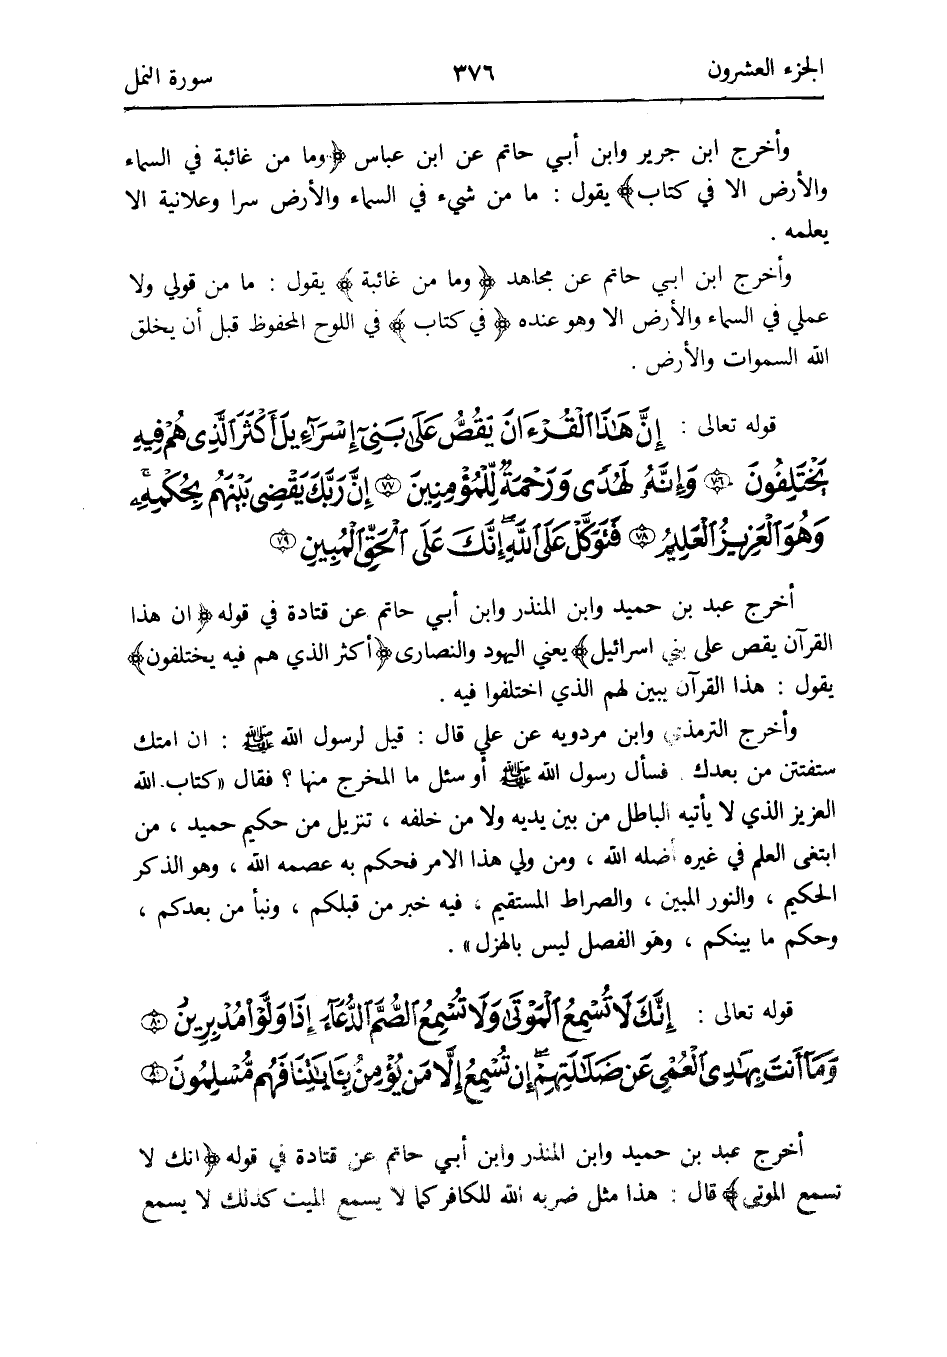 الجزء العشرون ٣٧٦ سورة النمل
وأخرج ابن جرير وابن أبي حاتم عن ابن عباس ﴿وما من غائبة في السماء
والأرض الا في كتاب﴾ يقول : ما من شيء في السماء والأرض سرا وعلانية الا
يعلمه .
وأخرج ابن ابي حاتم عن مجاهد ﴿ وما من غائبة ﴾ يقول : ما من قولي ولا
عملي في السماء والأرض الا وهو عنده ﴿ في كتاب ﴾ في اللوح المحفوظ قبل أن يخلق
الله السموات والأرض .
قوله تعالى : إِنَّ هَٰذَا ٱلْقُرْءَانَ يَقُصُّ عَلَىٰ بَنِىٓ إِسْرَٰٓءِيلَ أَكْثَرَ ٱلَّذِى هُمْ فِيهِ
يَخْتَلِفُونَ ٧٦ وَإِنَّهُۥ لَهُدًى وَرَحْمَةٌ لِّلْمُؤْمِنِينَ ٧٧ إِنَّ رَبَّكَ يَقْضِى بَيْنَهُم بِحُكْمِهِۦۚ
وَهُوَ ٱلْعَزِيزُ ٱلْعَلِيمُ ٧٨ فَتَوَكَّلْ عَلَى ٱللَّهِۖ إِنَّكَ عَلَى ٱلْحَقِّ ٱلْمُبِينِ ٧٩
أخرج عبد بن حميد وابن المنذر وابن أبي حاتم عن قتادة في قوله ﴿ان هذا
القرآن يقص على بني اسرائيل﴾ يعني اليهود والنصارى ﴿أكثر الذي هم فيه يختلفون﴾
يقول : هذا القرآن يبين لهم الذي اختلفوا فيه .
وأخرج الترمذي وابن مردويه عن علي قال : قيل لرسول الله ﷺ : ان امتك
ستفتتن من بعدك . فسأل رسول الله ﷺ أو سئل ما المخرج منها ؟ فقال « كتاب الله
العزيز الذي لا يأتيه الباطل من بين يديه ولا من خلفه ، تنزيل من حكيم حميد ، من
ابتغى العلم في غيره أضله الله ، ومن ولي هذا الامر فحكم به عصمه الله ، وهو الذكر
الحكيم ، والنور المبين ، والصراط المستقيم ، فيه خبر من قبلكم ، ونبأ من بعدكم ،
وحكم ما بينكم ، وهو الفصل ليس بالهزل » .
قوله تعالى : إِنَّكَ لَا تُسْمِعُ ٱلْمَوْتَىٰ وَلَا تُسْمِعُ ٱلصُّمَّ ٱلدُّعَآءَ إِذَا وَلَّوْاْ مُدْبِرِينَ ٨٠
وَمَآ أَنتَ بِهَٰدِى ٱلْعُمْىِ عَن ضَلَٰلَتِهِمْۖ إِن تُسْمِعُ إِلَّا مَن يُؤْمِنُ بِـَٔايَٰتِنَا فَهُم مُّسْلِمُونَ ٨١
أخرج عبد بن حميد وابن المنذر وابن أبي حاتم عن قتادة في قوله ﴿انك لا
تسمع الموتى﴾ قال : هذا مثل ضربه الله للكافر كما لا يسمع الميت كذلك لا يسمع